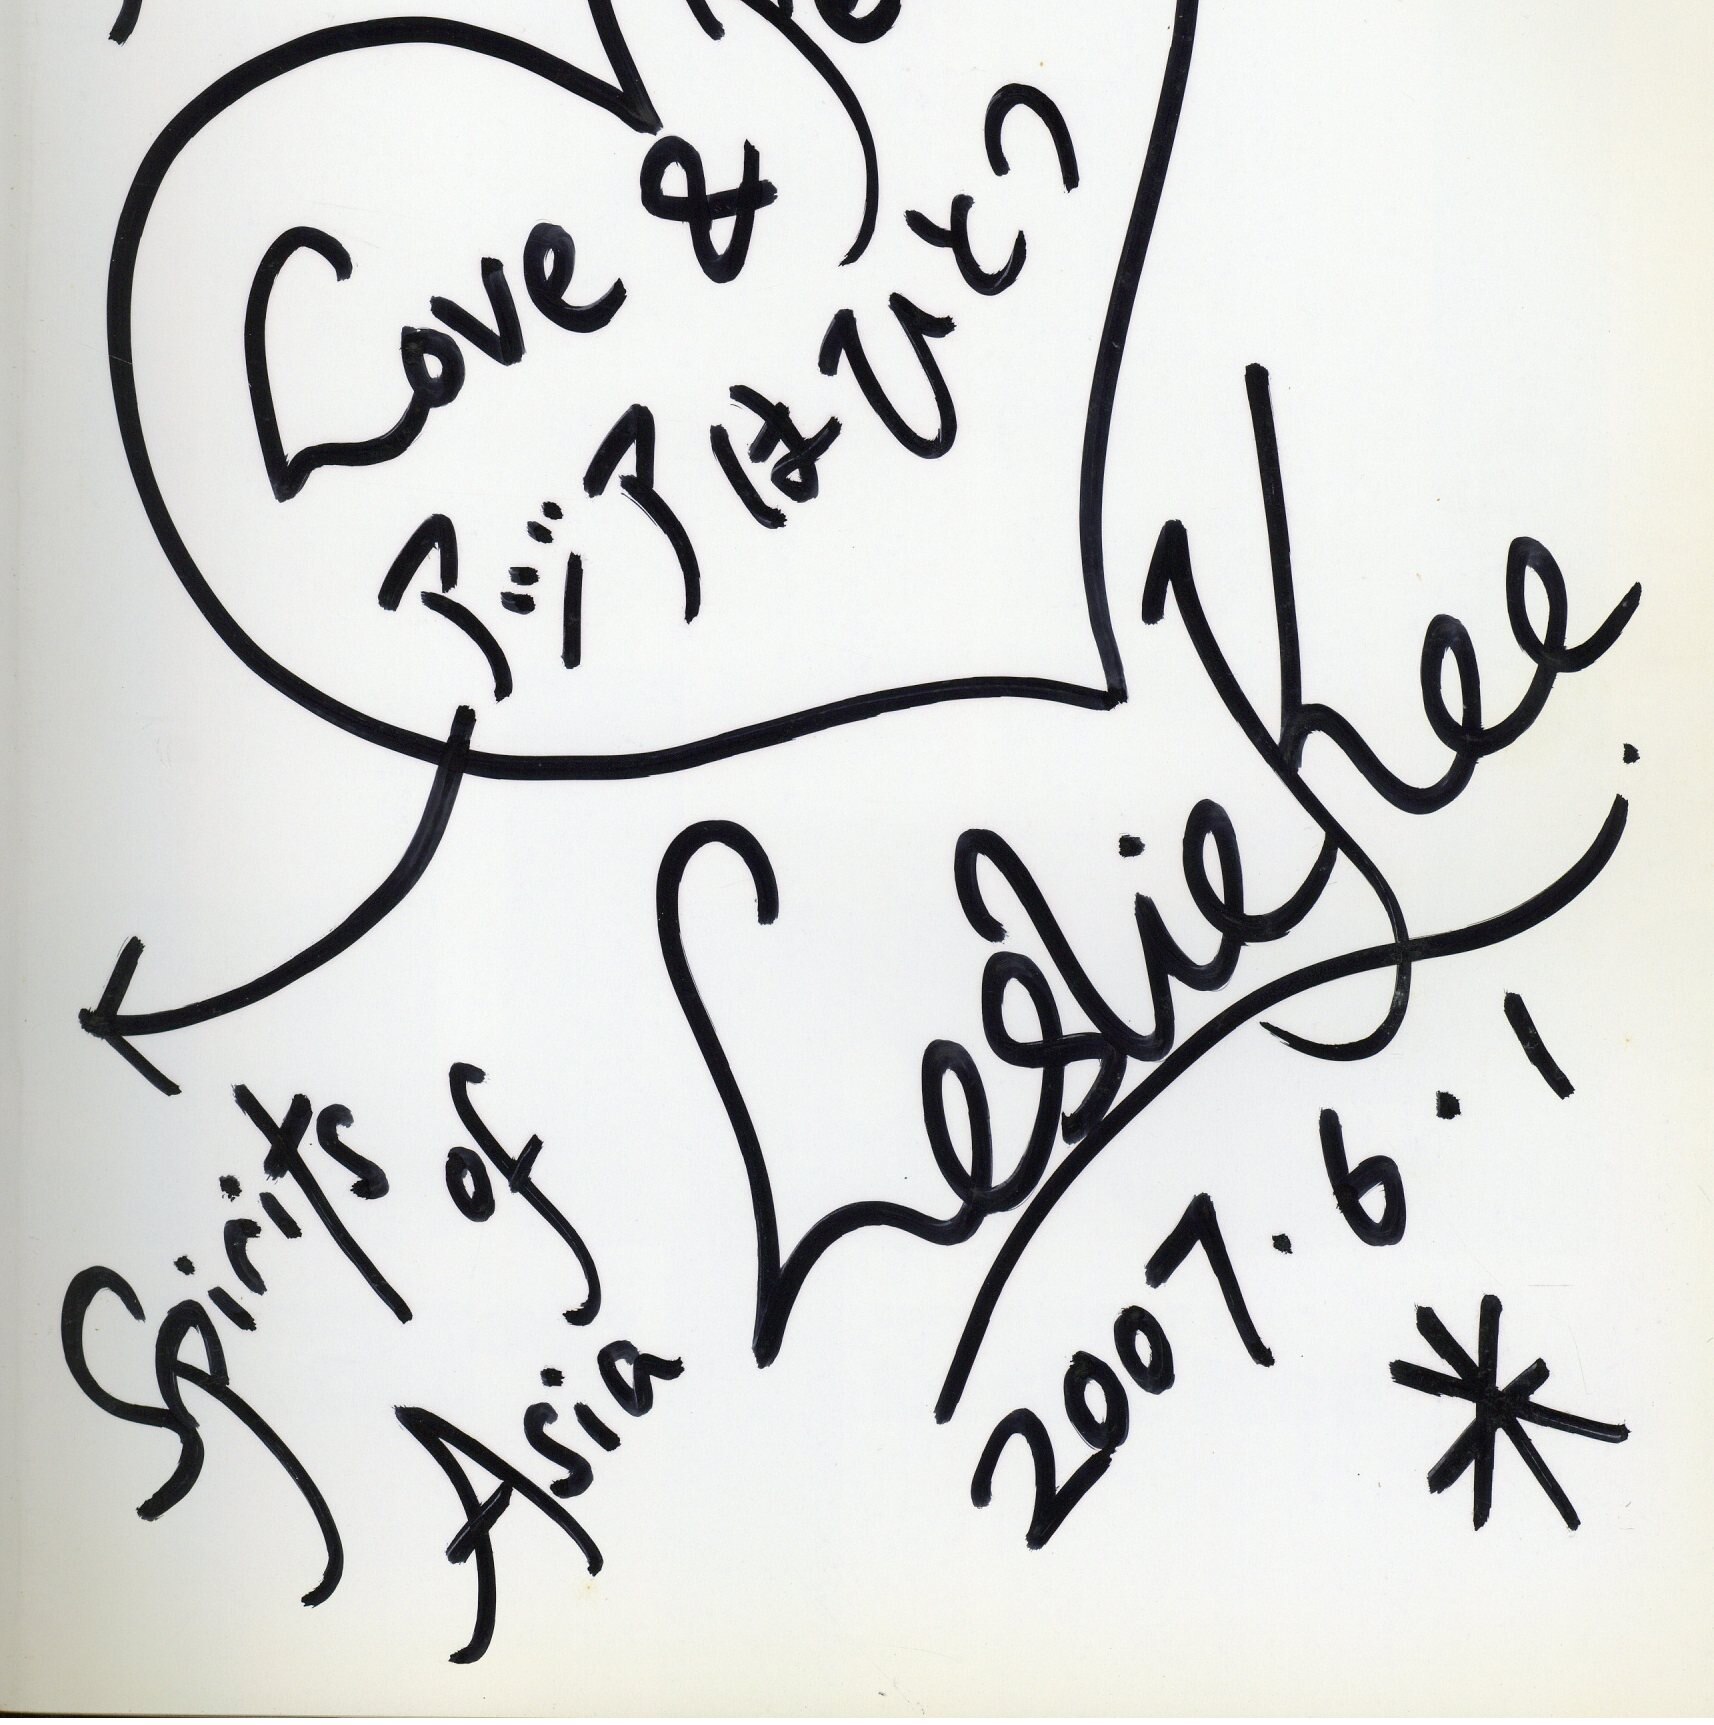 Love &
アジアはひとつ
Leslie Kee.
Spirits of
Asia
2007.6.1